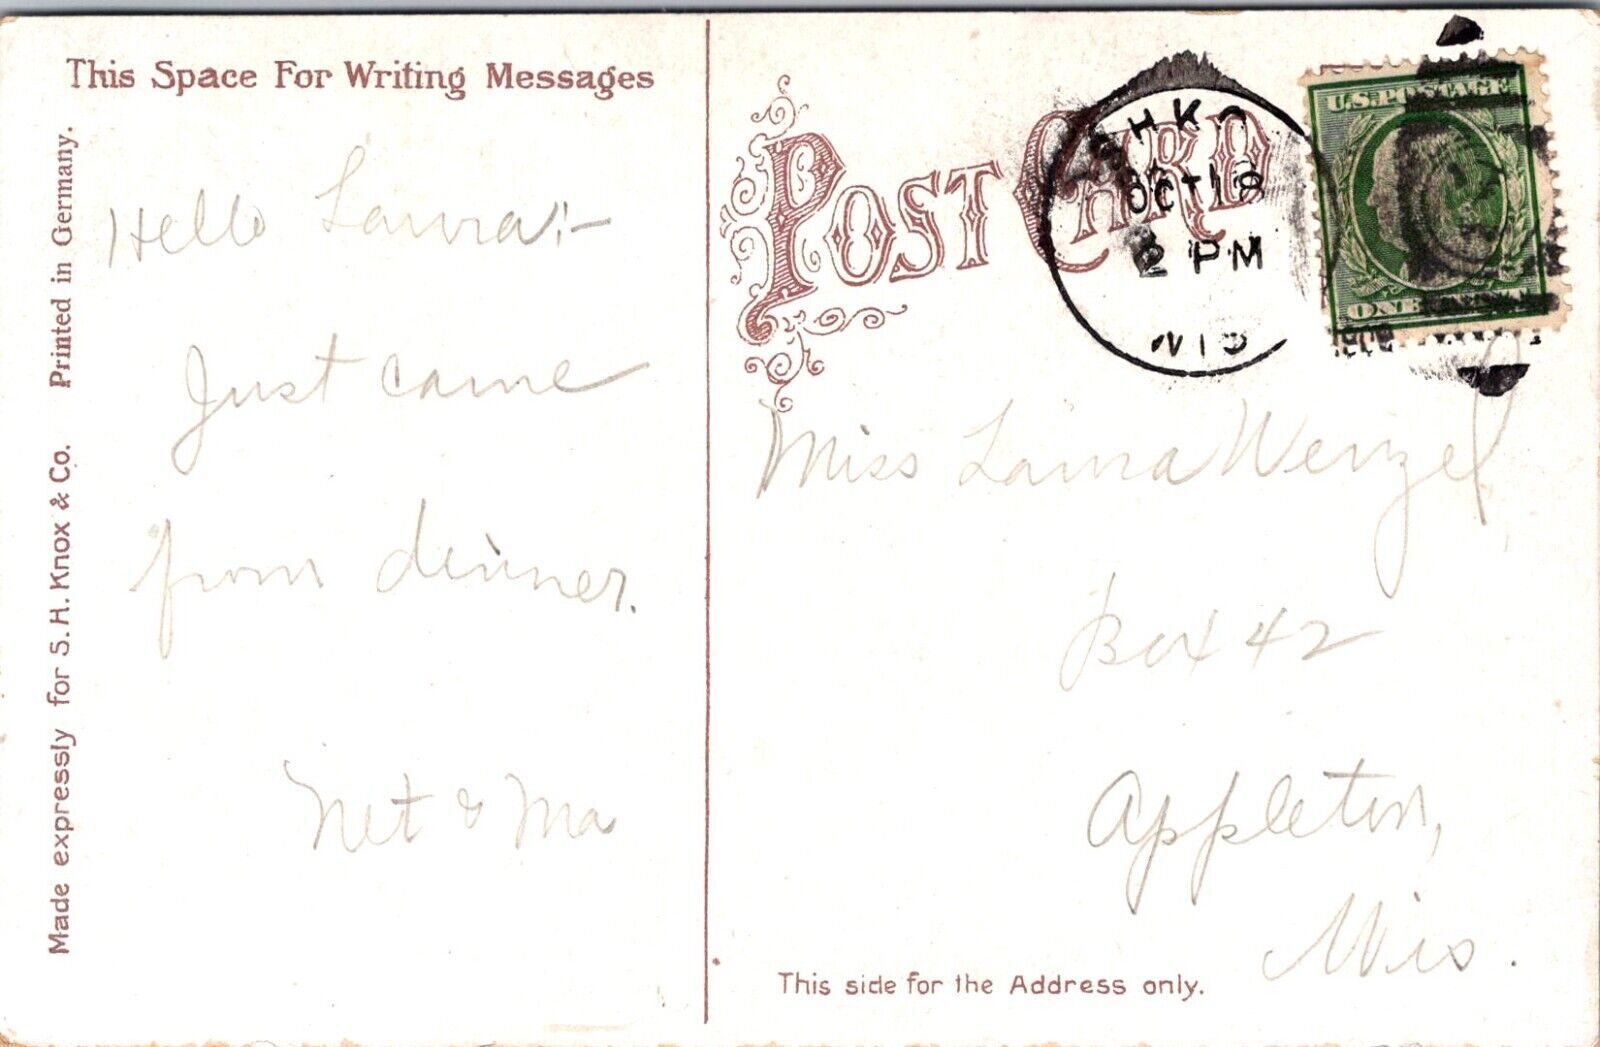 This Space For Writing Messages
Hello Laura:-
Just came
from dinner.
Net & Ma
Made expressly for S. H. Knox & Co. Printed in Germany.
POST CARD
OCT 18
2 PM
WIS
U.S. POSTAGE
ONE
Miss Laura Wenzel,
Box 42
Appleton,
Wis.
This side for the Address only.